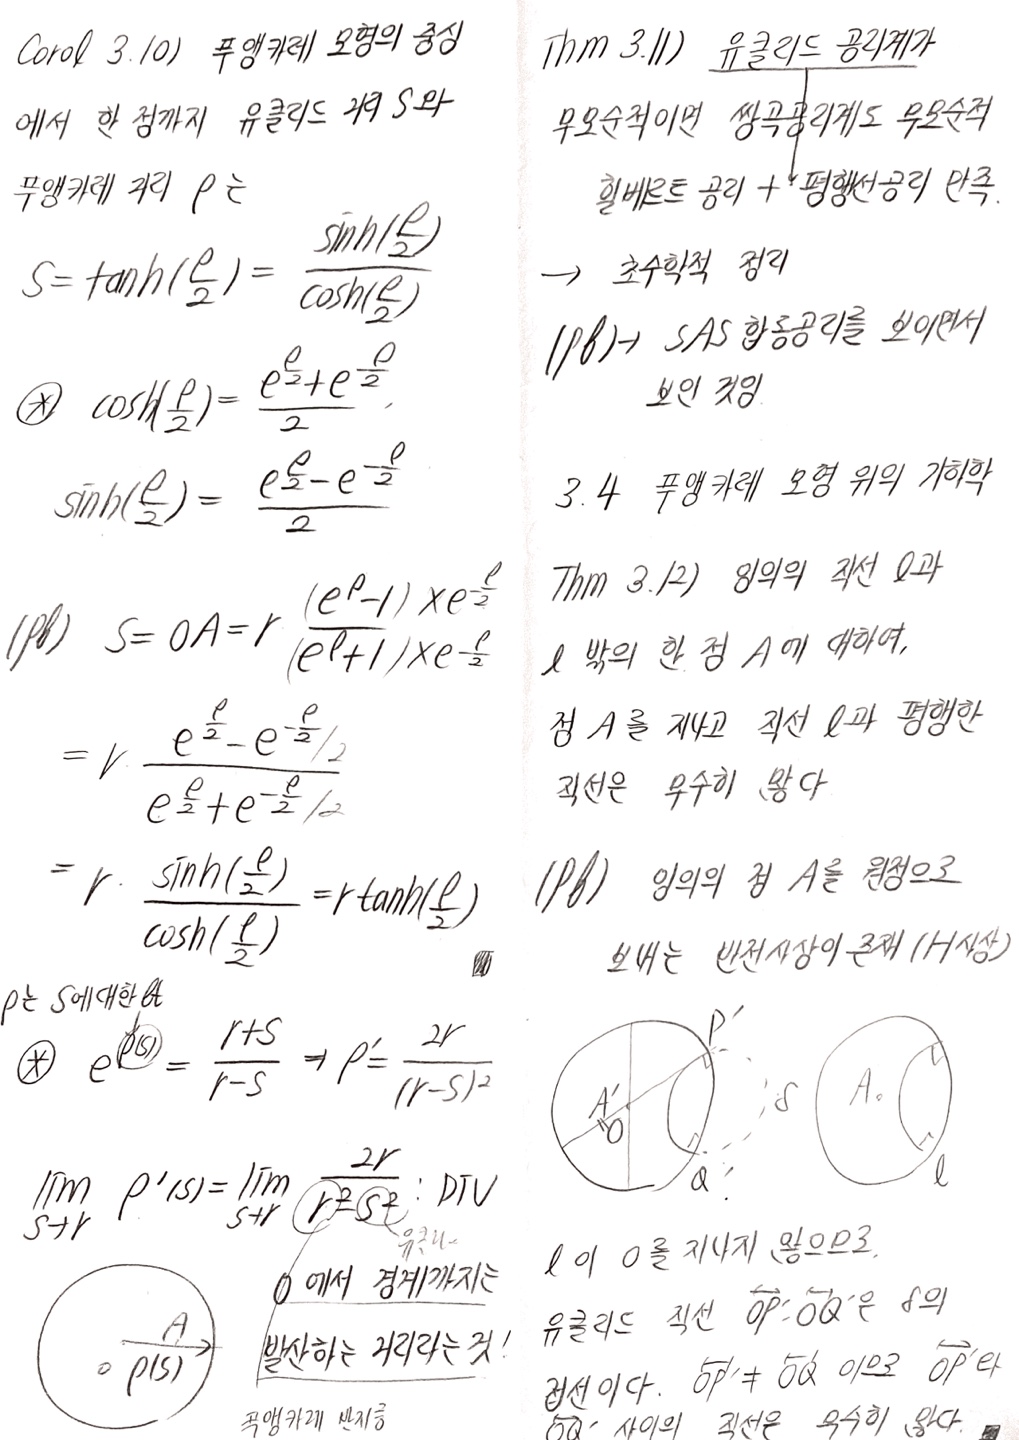 Corol 3.10) 푸앵카레 모형의 중심
에서 한 점까지 유클리드 거리 S와
푸앵카레 거리 ρ는
S = tanh(ρ/2) = sinh(ρ/2) / cosh(ρ/2)
⊛ cosh(ρ/2) = (e^(ρ/2) + e^(-ρ/2)) / 2,
sinh(ρ/2) = (e^(ρ/2) - e^(-ρ/2)) / 2
(pf) S = OA = r (e^ρ - 1) × e^(-ρ/2) / (e^ρ + 1) × e^(-ρ/2)
= r · (e^(ρ/2) - e^(-ρ/2)/2) / (e^(ρ/2) + e^(-ρ/2)/2)
= r · sinh(ρ/2) / cosh(ρ/2) = r tanh(ρ/2)
ρ는 S에대한
⊛ e^ρ(s) = (r+S) / (r-S) → ρ' = 2r / (r-S)²
lim s→r ρ'(s) = lim s→r 2r / (r² - S²) : DIV
유클리
O에서 경계까지는
발산하는 거리라는 것!
A
O ρ(s)
푸앵카레 반지름
Thm 3.11) 유클리드 공리계가
무모순적이면 쌍곡공리계도 무모순적
힐베르트 공리 + 평행선공리 만족.
→ 초수학적 정리
(pf) → SAS 합동공리를 보이면서
보인 것임.
3.4 푸앵카레 모형 위의 기하학
Thm 3.12) 임의의 직선 l과
l 밖의 한 점 A에 대하여,
점 A를 지나고 직선 l과 평행한
직선은 무수히 많다
(pf) 임의의 점 A를 원점으로
보내는 반전사상이 존재 (H사상)
P'
A' O δ
Q'
A.
l
l이 O를 지나지 않으므로,
유클리드 직선 OP', OQ'은 δ의
접선이다. OP' ≠ OQ' 이므로 OP'와
OQ' 사이의 직선은 무수히 많다.